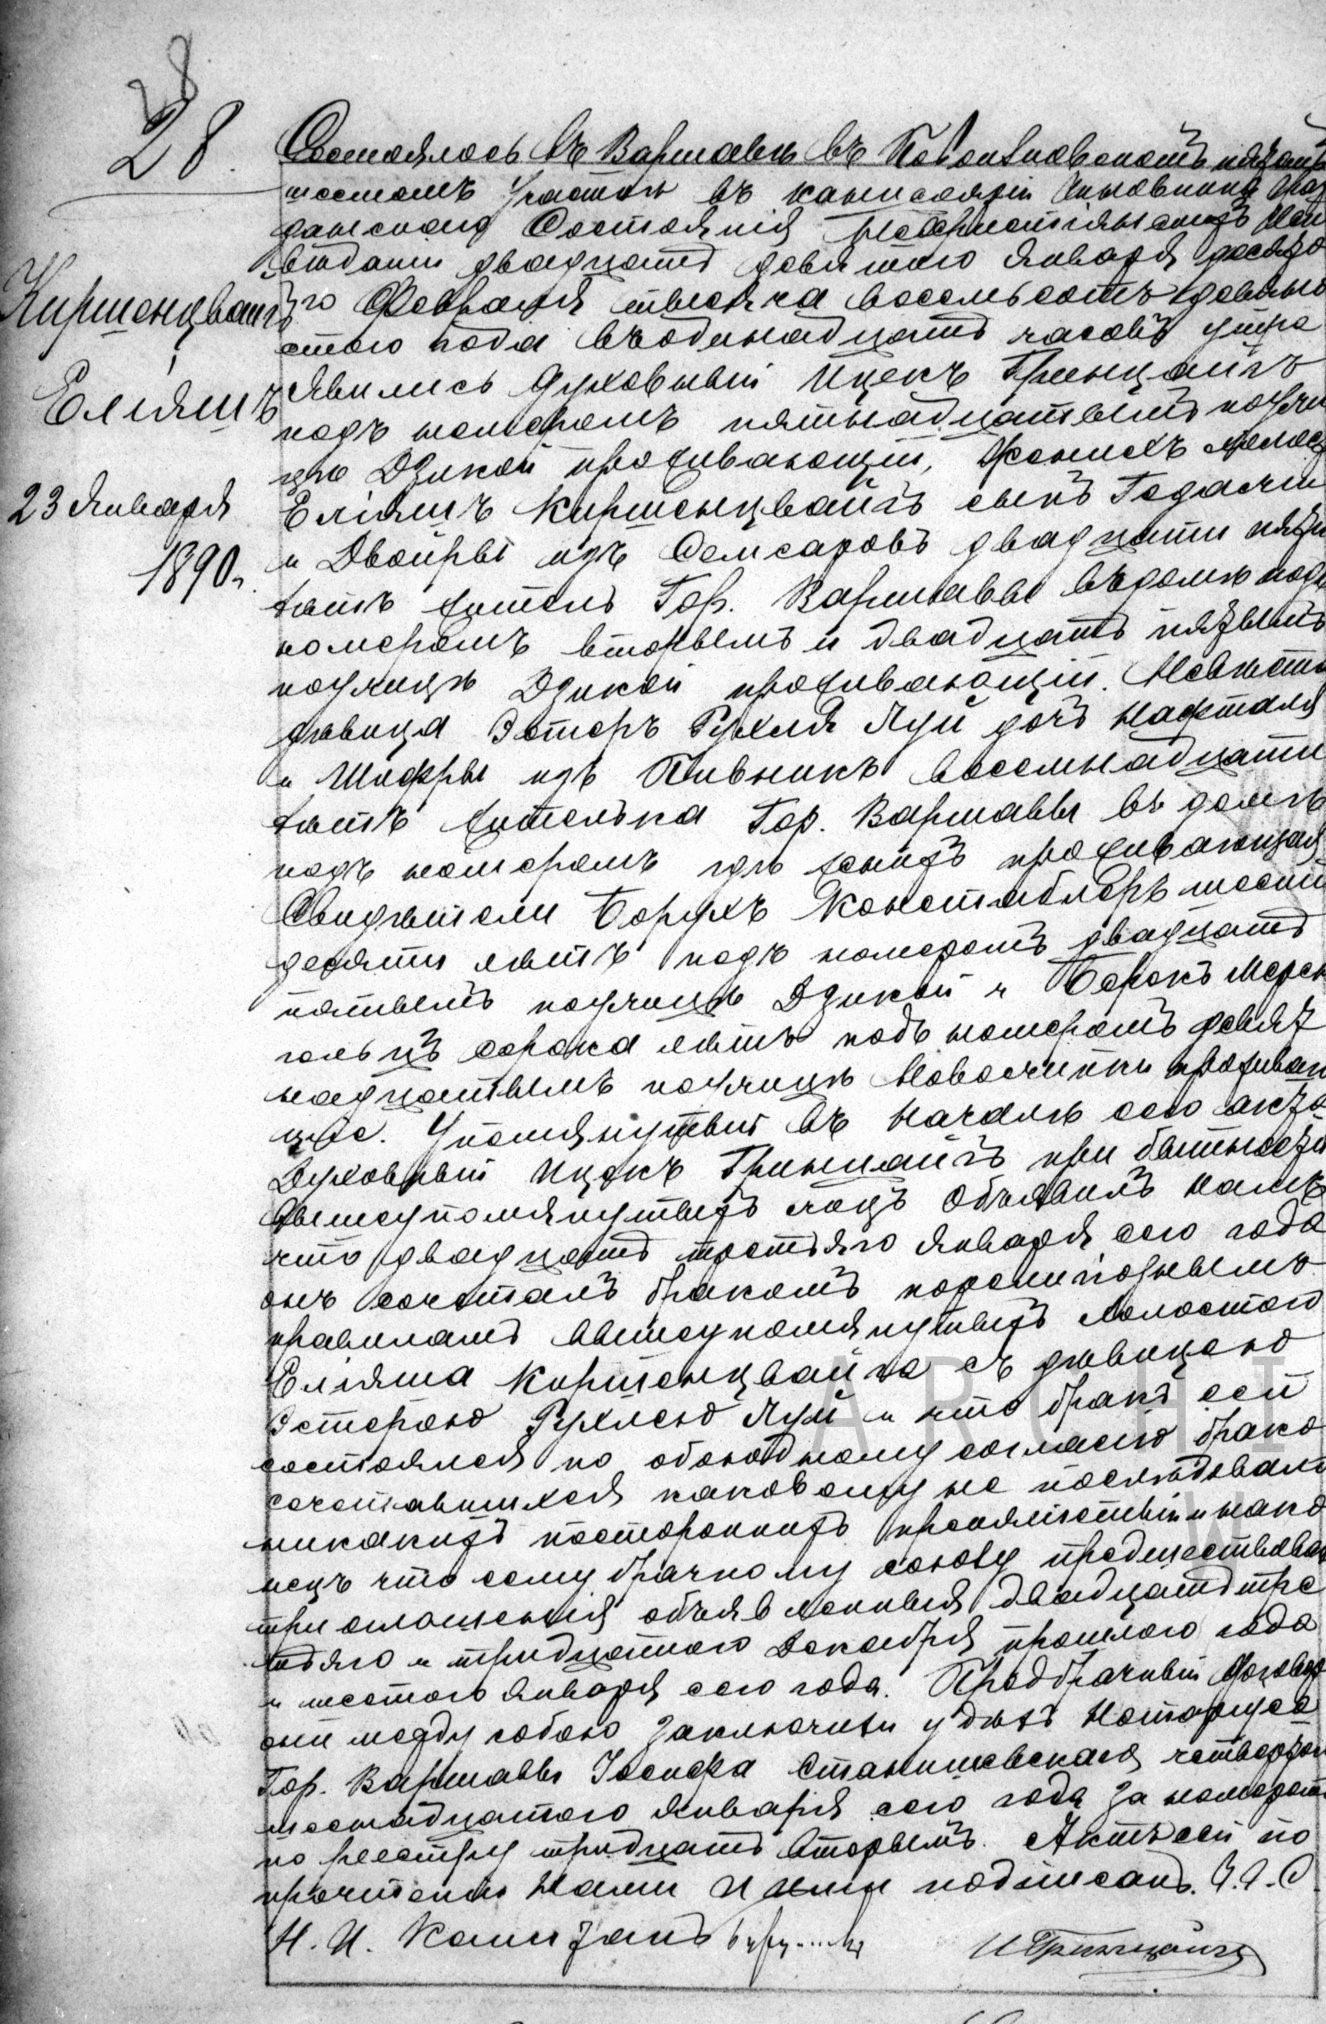 28
28.
Состоялось въ Варшавѣ въ Повонзковскомъ
шестомъ Участкѣ въ канцеляріи Чиновника Граж
данскаго Состоянія Нехристіанскихъ Испо
вѣданій двадцать девятаго Января десята
го Февраля тысяча восемьсотъ девяно
стаго года въ одинадцать часовъ утра
Киршенцвайгъ
Явились духовный Ицекъ Гринцайгъ
Еліяшъ
подъ номеромъ пятнадцатымъ по ули
цѣ Дзикой проживающій, Женихъ Холост
23 Января
Еліяшъ Киршенцвайгъ сынъ Гедальи
1890 г.
и Двойры изъ двадцати пяти
лѣтъ житель Гор. Варшавы въ домѣ подъ
номеромъ вторымъ и двадцать пятымъ
по улицѣ Дзикой проживающій. Невѣста
дѣвица Эстеръ Рухля Луй дочь Нафталя
и Шифры изъ Пивникъ восемнадцати
лѣтъ жителька Гор. Варшавы въ домѣ
подъ номеромъ гдѣ женихъ проживающая
Свидѣтели Борухъ Констаблеръ шести
десяти лѣтъ подъ номеромъ двадцать
пятымъ по улицѣ Дзикой и Берокъ Мерен
гольцъ сорока лѣтъ подъ номеромъ девят
надцатымъ по улицѣ Новолипки проживаю
щіе. Упомянутый въ началѣ сего акта
Духовный Ицекъ Гринцайгъ при бытности
вышеупомянутыхъ лицъ объявилъ намъ
что двадцать третьяго Января сего года
онъ сочеталъ бракомъ по религіознымъ
правиламъ вышеупомянутыхъ Холостого
Еліяша Киршенцвайга съ дѣвицею
Эстерою Рухлею Луй и что бракъ сей
состоялся по обоюдному согласію брако
сочетавшихся каковому не послѣдовало
никакихъ постороннихъ препятствій и нако
нецъ что сему брачному союзу предшествовали
три оглашенія объявленныя двадцать тре
тьяго и тридцатаго Декабря прошлаго года
и шестого Января сего года. Предбрачный Договоръ
они между собою заключили у дѣлъ Нотаріуса
Гор. Варшавы Іосифа Станишевскаго четвертаго
шестнадцатого Января сего года за номеромъ
по реестру тридцать вторымъ. Актъ сей по
прочтеніи Нами и ими подписанъ. Ч.Г.С
Н. И. И Гринцайгъ
ARCHI
W